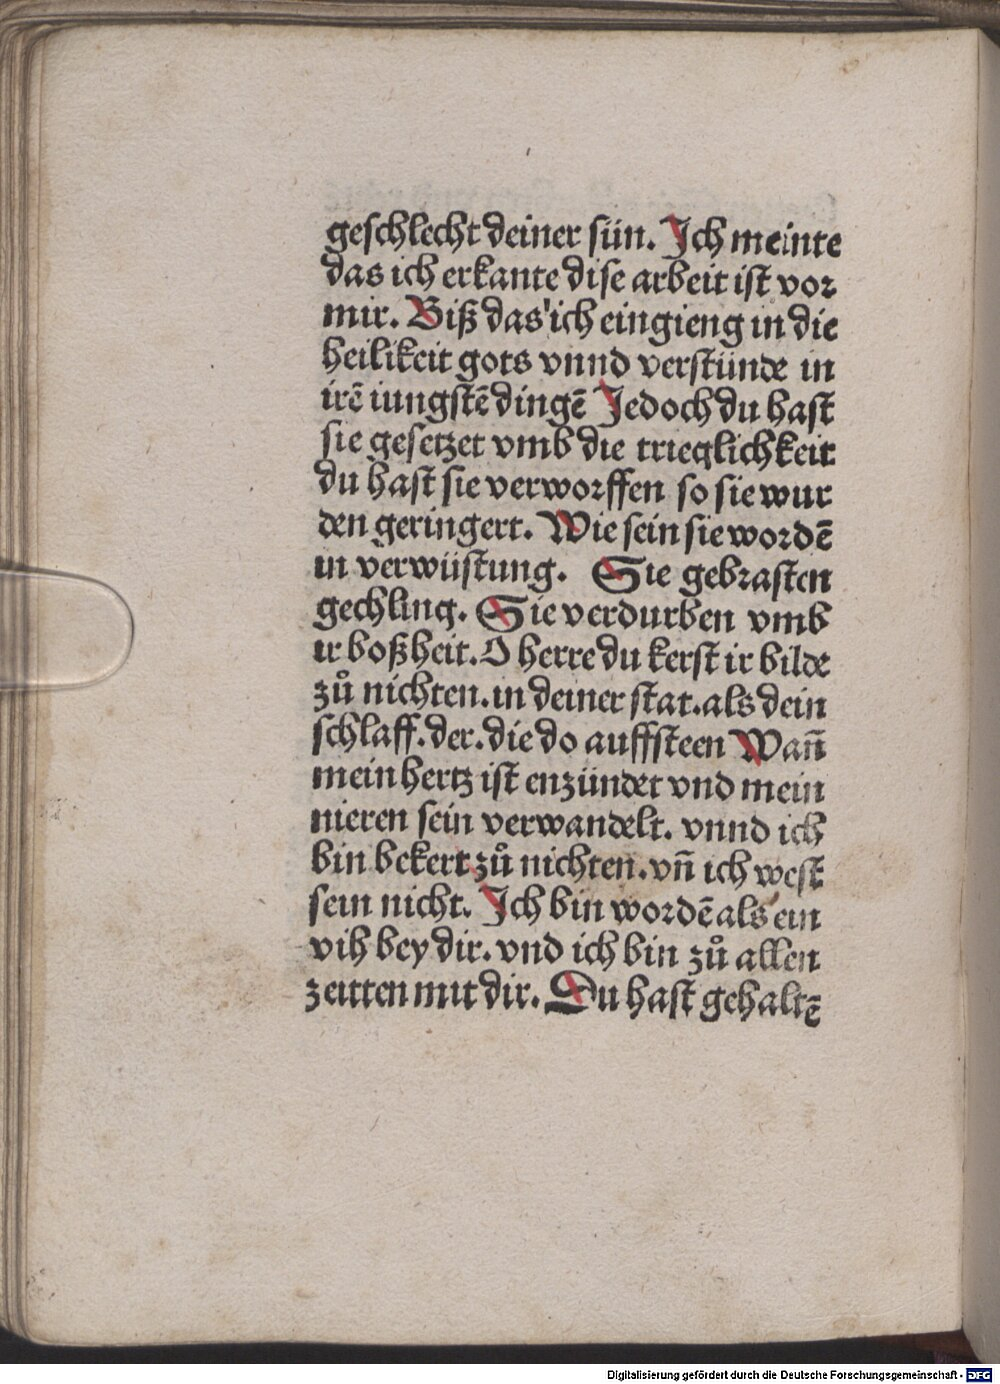 geschlecht deiner sün. Ich meinte
das ich erkante dise arbeit ist vor
mir. Biß das ich eingieng in die
heilikeit gots vnnd verstünde in
irē iungstē dingē Jedoch du hast
sie gesetzet vmb die trieglichkeit
du hast sie verworffen so sie wur
den geringert. Wie sein sie wordē
in verwüstung. Sie gebrasten
gechling. Sie verdurben vmb
ir boßheit. O herre du kerst ir bilde
zů nichten. in deiner stat. als dein
schlaff. der. die do auffsteen Wañ
mein hertz ist enzündet vnd mein
nieren sein verwandelt. vnnd ich
bin bekert zů nichten. vñ ich west
sein nicht. Ich bin wordē als ein
vih bey dir. vnd ich bin zů allen
zeitten mit dir. Du hast gehaltē
Digitalisierung gefördert durch die Deutsche Forschungsgemeinschaft - DFG